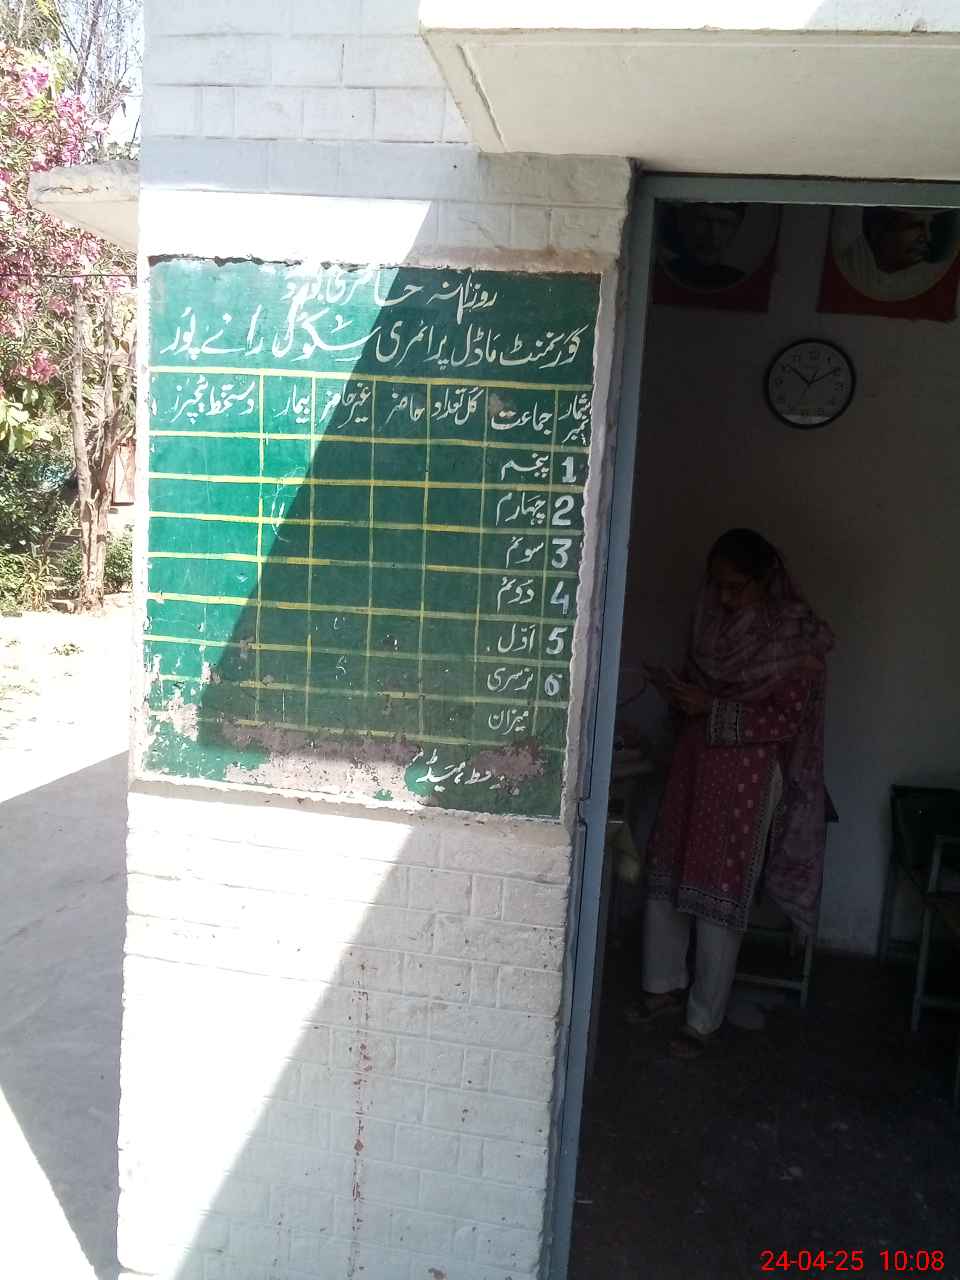 روزانہ حاضری بورڈ
گورنمنٹ ماڈل پرائمری سکول رائے پور
نمبر شمار جماعت کل تعداد حاضر غیر حاضر بیمار دستخط ٹیچرز
1 پنجم
2 چہارم
3 سوئم
4 دوئم
5 اوّل
6 نرسری
میزان
ہیڈ
24-04-25 10:08